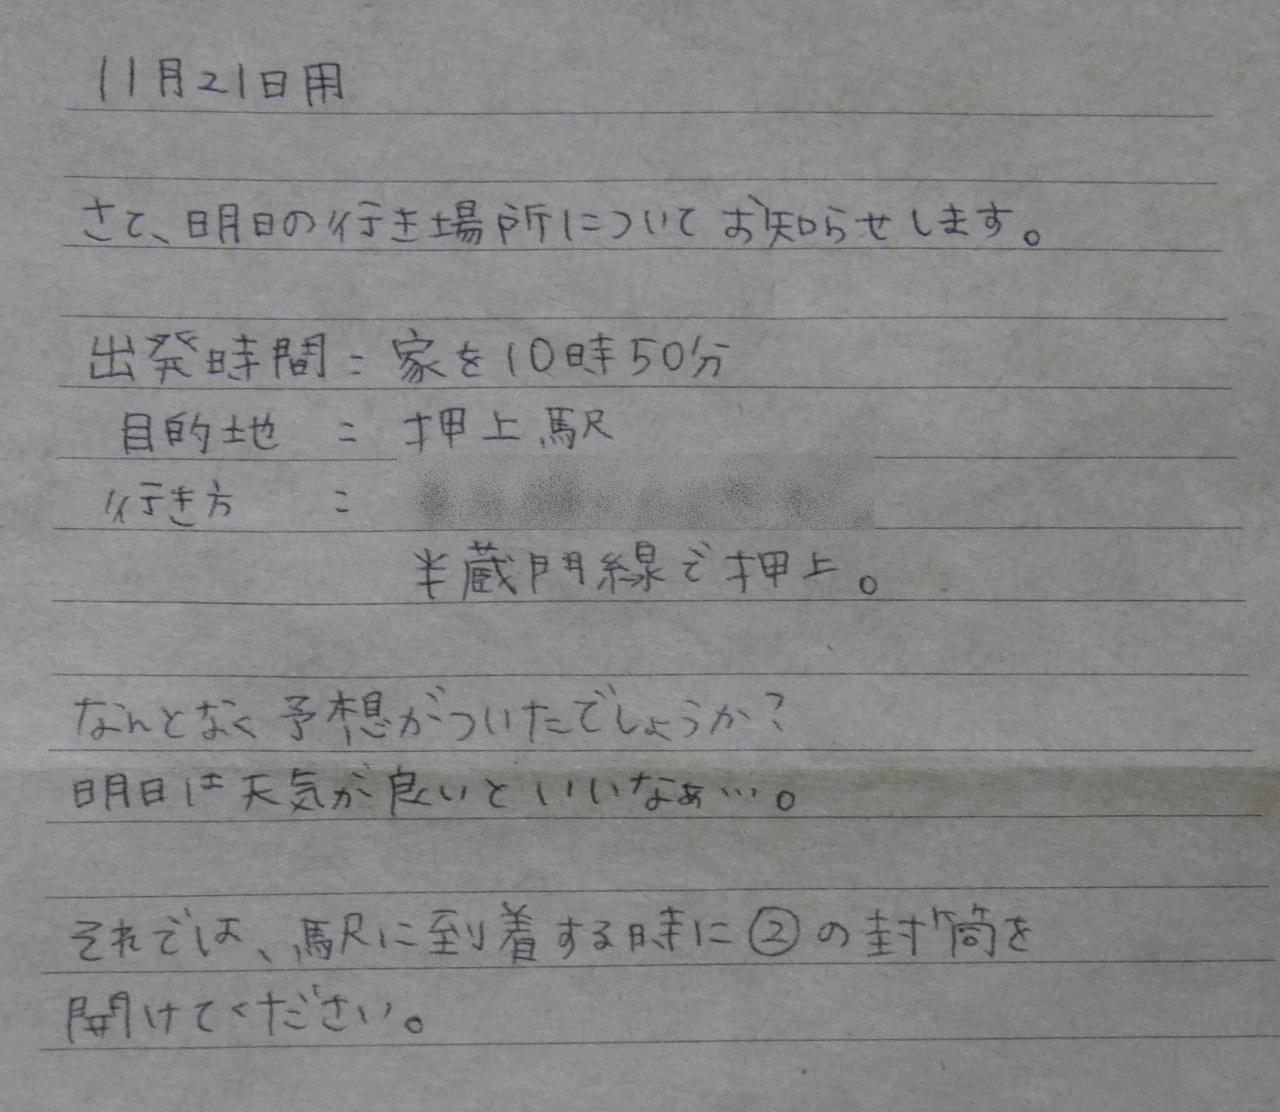 11月21日用
さて、明日の行き場所についてお知らせします。
出発時間=家を10時50分
目的地 = 押上駅
行き方 =
半蔵門線で押上。
なんとなく予想がついたでしょうか?
明日は天気が良いといいなぁ…。
それでは、駅に到着する時に②の封筒を
開けてください。